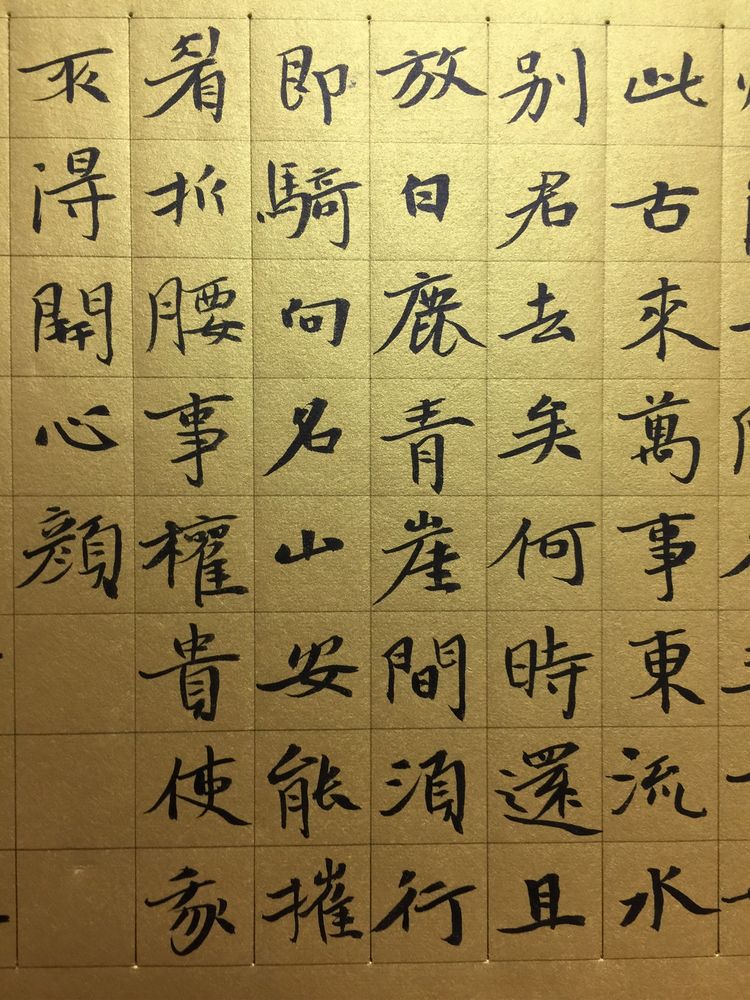 此古來萬事東流水
別君去矣何時還且
放白鹿青崖間須行
即騎向名山安能摧
眉折腰事權貴使我
不得開心顏